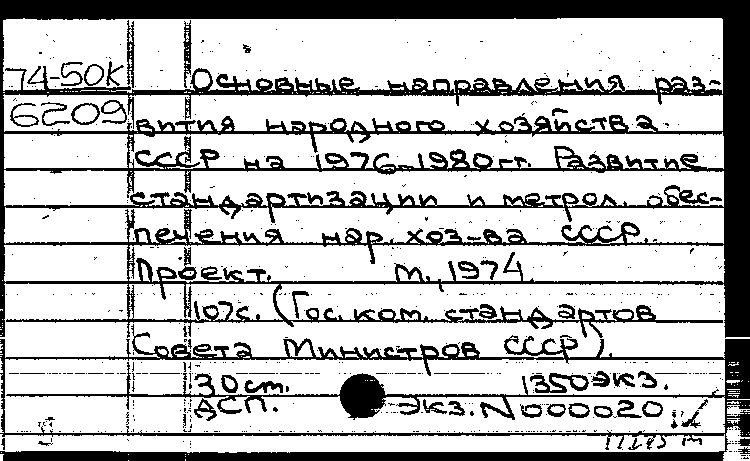 74-50к Основные направления раз-
6209 вития народного хозяйства
СССР на 1976-1980гг. Развитие
стандартизации и метрол. обес-
печения нар. хоз-ва СССР.
Проект. М., 1974.
107с. (Гос. ком. стандартов
Совета Министров СССР).
30 ст. 1350экз.
ДСП. Экз. N 000020